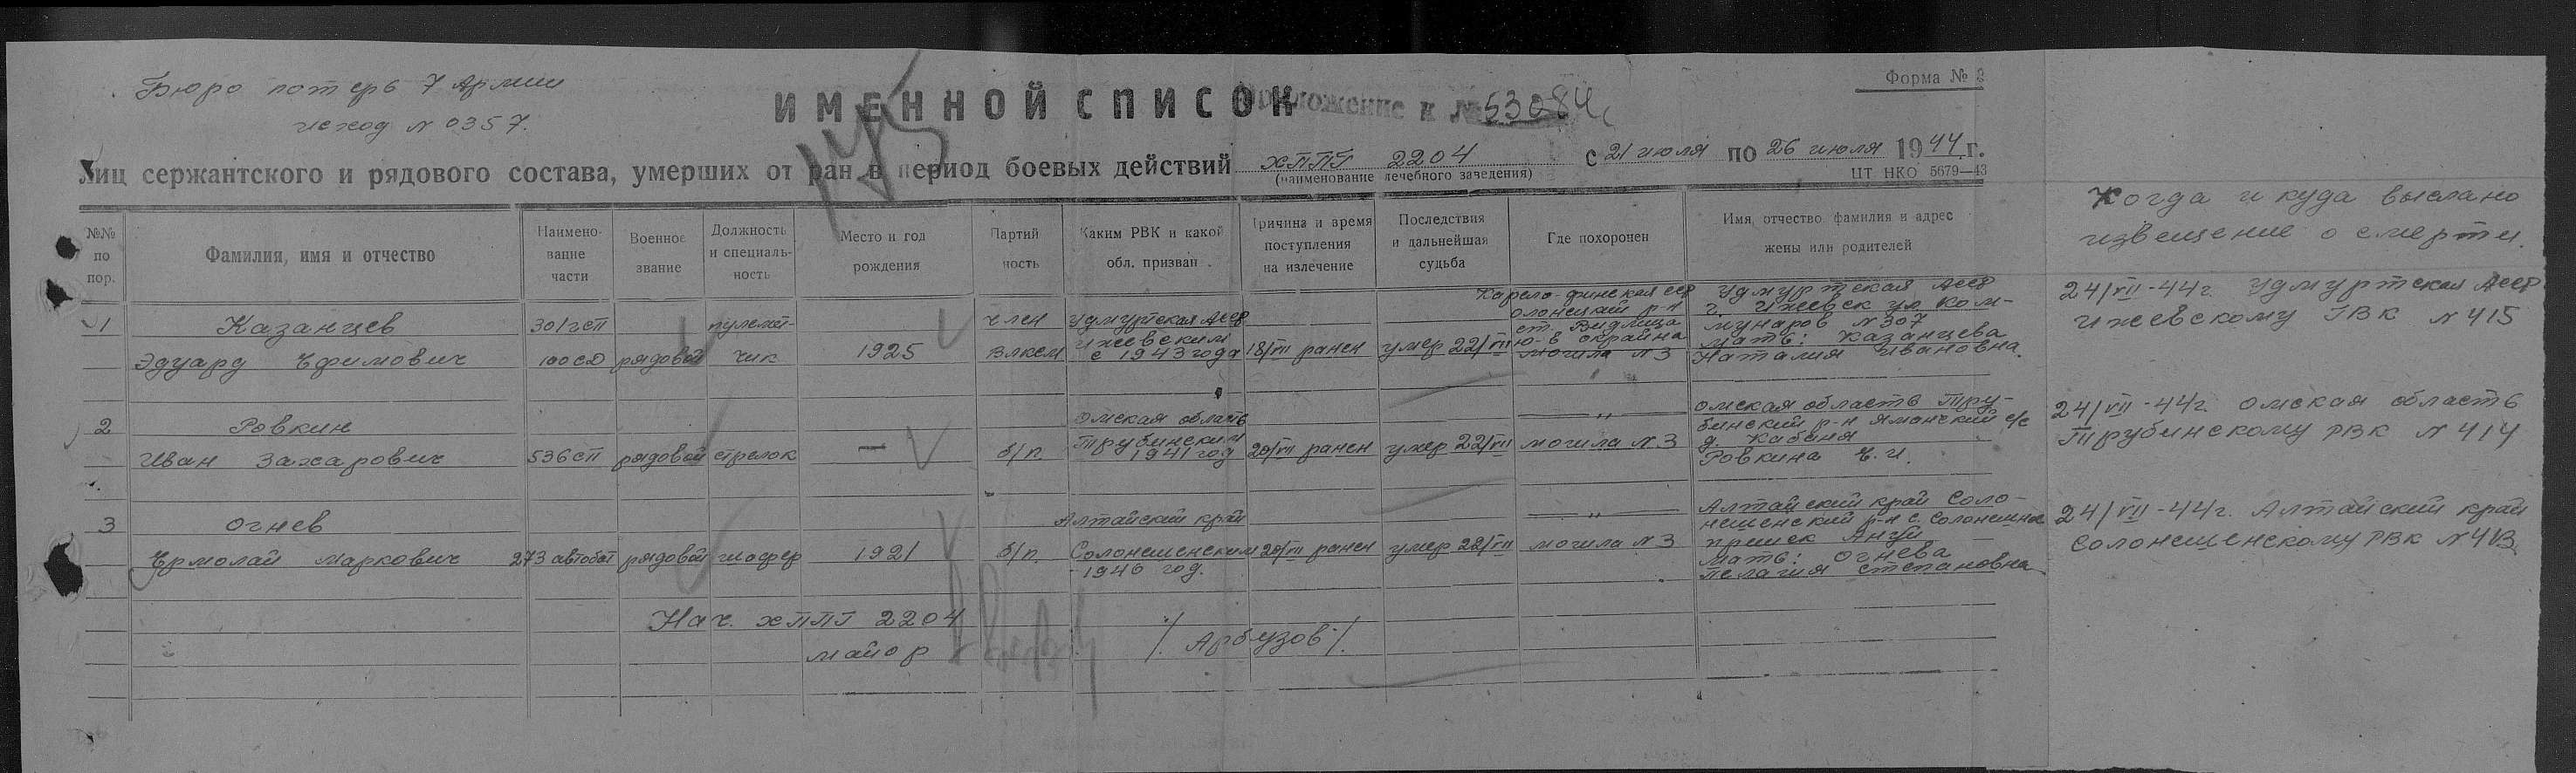 Бюро потерь 7 Армии
исход N 0357.
Форма № 2
ИМЕННОЙ СПИСОК
Приложение к № 53084с
Лиц сержантского и рядового состава, умерших от ран в период боевых действий ХППГ 2204 с 21 июля по 26 июля 1944 г.
(наименование лечебного заведения)
ЦТ НКО 5679—43
№№ по пор.
Фамилия, имя и отчество
Наименование части
Военное звание
Должность и специальность
Место и год рождения
Партийность
Каким РВК и какой обл. призван
Причина и время поступления на излечение
Последствия и дальнейшая судьба
Где похоронен
Имя, отчество, фамилия и адрес жены или родителей
Когда и куда выслано
извещение о смерти.
1
Казанцев
Эдуард Ефимович
301 гсп
100 сд
рядовой
пулемет-
чик
1925
член
ВЛКСМ
Удмуртская АССР
Ижевским
с 1943 года
18/VII ранен
умер 22/VII
Карело-финская ССР
Олонецкий р-н
ст. Видлица
ю-в окрайна
могила N 3
Удмуртская АССР
г. Ижевск ул Ком-
мунаров N 307
мать: Казанцева
Наталия Ивановна.
24/VII-44г. Удмуртская АССР
Ижевскому ГВК N 415
2
Ровкин
Иван Захарович
536 сп
рядовой
стрелок
—
б/п
Омская область
Трубинским
1941 год
20/VII ранен
умер 22/VII
— „ —
могила N 3
Омская область Тру-
бинский р-н Яманский с/с
д. Кабаня
Ровкина Е. И.
24/VII-44г. Омская область
Трубинскому РВК N 414
3
Огнев
Ермолай Маркович
273 автобат
рядовой
шофер
1921
б/п.
Алтайский край
Солонешенским
1940 год.
20/VII ранен
умер 22/VII
— „ —
могила N 3
Алтайский край Соло-
нешенский р-н с. Солонешна
прииск Ануй
мать: Огнева
Пелагия Степановна
24/VII-44г. Алтайский край
Солонешенскому РВК N 413
Нач. ХППГ 2204
майор
/. Арбузов /.